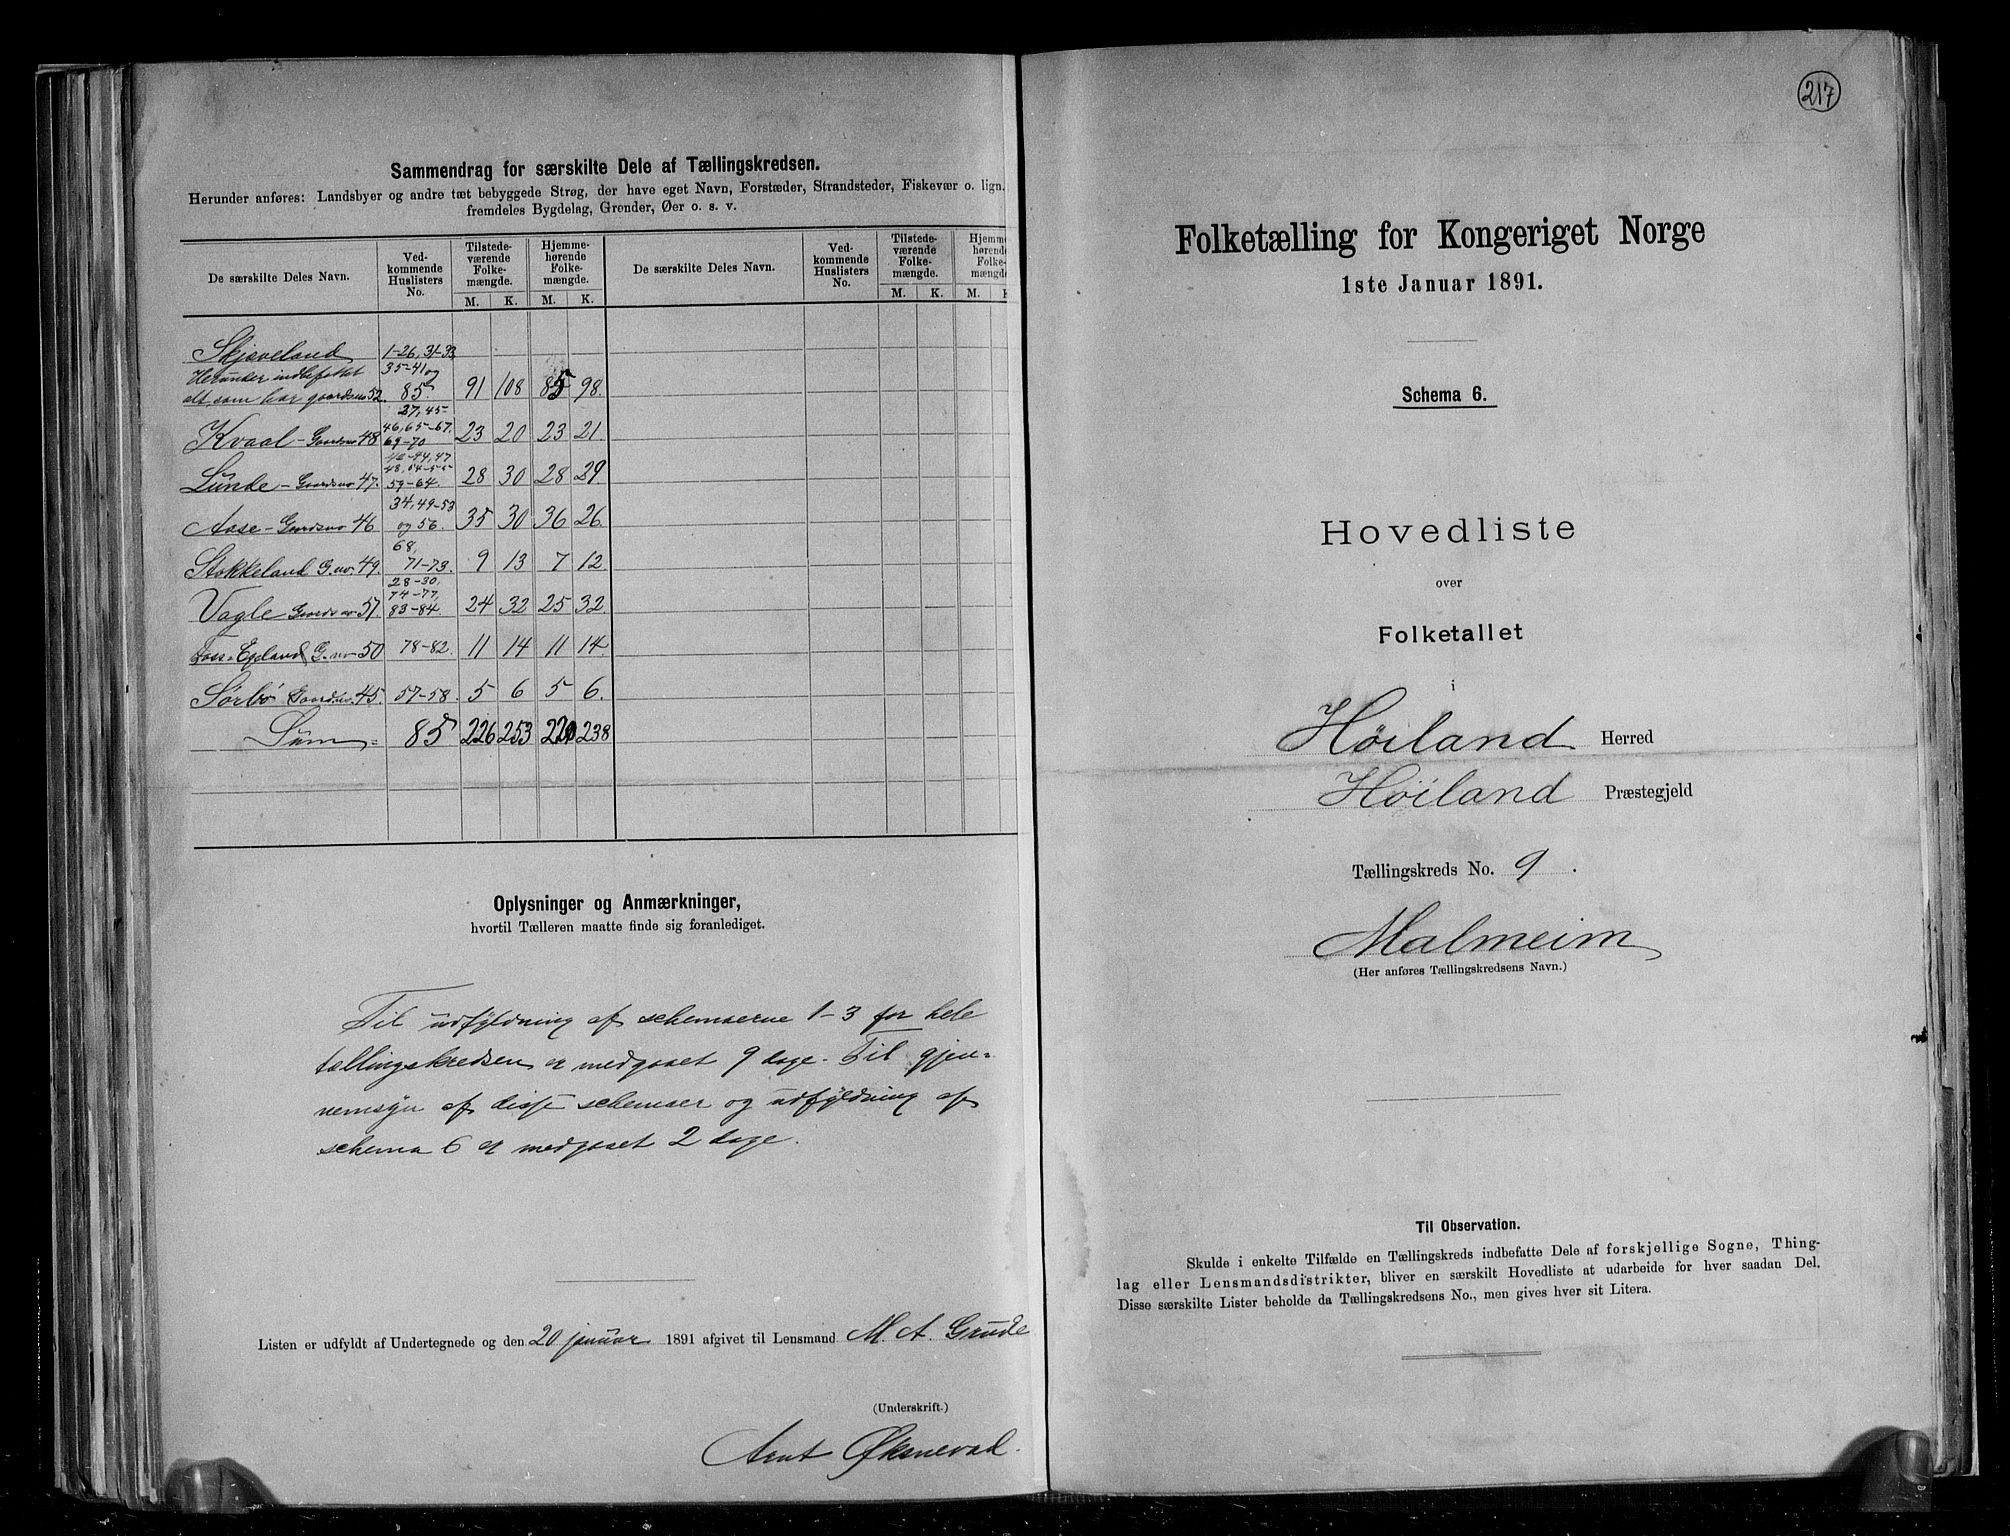 Sammendrag for særskilte Dele af Tællingskredsen.
Herunder anføres: Landsbyer og andre tæt bebyggede Strøg, der have eget Navn, Forstæder, Strandsteder, Fiskevær o. lign.
fremdeles Bygdelag, Grender, Øer o. s. v.
De særskilte Deles Navn. Ved-kommende Huslisters No. Tilstede-værende Folke-mængde. Hjemme-hørende Folke-mængde. De særskilte Deles Navn. Ved-kommende Huslisters No. Tilstede-værende Folke-mængde. Hjemm hørende Folke- mængde.
M. K. M. K. M. K. M.
Skjæveland 1-26, 31-33
Herunder indbefattet 35-41 og
alt som har gaardsno 52. 85. 91 108 85 98.
27, 45-
Kvaal - Gaardsno 48 46, 65-67. 69-70 23 20 23 21.
Lunde - Gaardsno 47. 42-44, 47 48, 54-55 59-64. 28 30 28 29
Aase - Gaardsno 46 34, 49-53 og 56. 35 30 36 26
Stokkeland G. no. 49. 68, 71-73. 9 13 7 12
Vagle Gaardsno 57. 28-30, 74-77, 83-84. 24 32 25 32.
Foss-Egeland G. no 50 78-82. 11 14 11 14.
Sørbø Gaardsno. 45. 57-58. 5 6 5 6.
Sum 85 226 253 220 238
Oplysninger og Anmærkninger,
hvortil Tælleren maatte finde sig foranlediget.
Til udfyldning af schemaerne 1-3 for hele
tællingskredsen er medgaaet 9 dage. Til gjen-
nemsyn af disse schemaer og udfyldning af
schema 6 er medgaaet 2 dage.
Listen er udfyldt af Undertegnede og den 20 januar 1891 afgivet til Lensmand M. A. Grude
(Underskrift.)
Arnt Øksnevad.
217
Folketælling for Kongeriget Norge
1ste Januar 1891.
Schema 6.
Hovedliste
over
Folketallet
i
Høiland Herred
Høiland Præstegjeld
Tællingskreds No. 9.
Malmeim
(Her anføres Tællingskredsens Navn.)
Til Observation.
Skulde i enkelte Tilfælde en Tællingskreds indbefatte Dele af forskjellige Sogne, Thing-
lag eller Lensmandsdistrikter, bliver en særskilt Hovedliste at udarbeide for hver saadan Del.
Disse særskilte Lister beholde da Tællingskredsens No., men gives hver sit Litera.